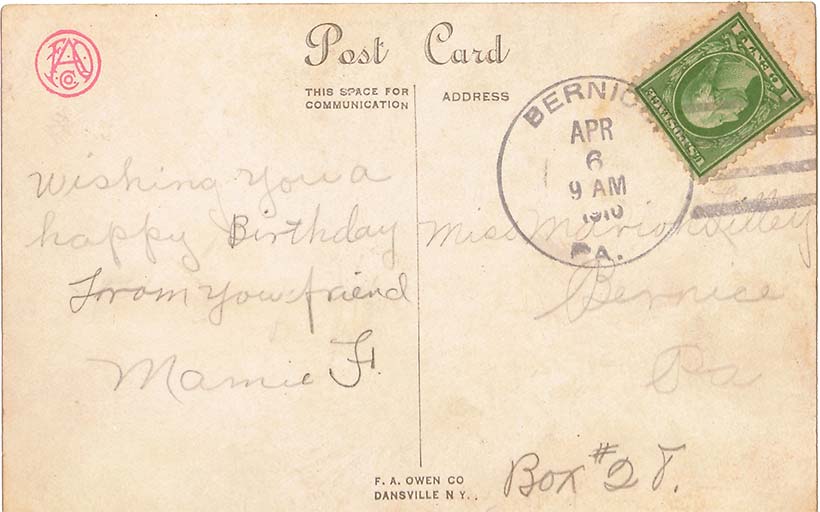 FAO Co.
Post Card
THIS SPACE FOR
COMMUNICATION
ADDRESS
BERNIC
APR
6
9 AM
1910
PA.
U.S. POSTAGE
Wishing you a
happy Birthday
From your friend
Mamie F.
Miss Marion
Bernice
Pa
Box #28.
F. A. OWEN CO
DANSVILLE N.Y..